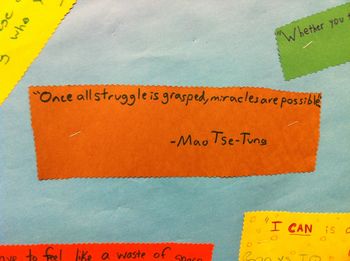 who
"Whether you
"Once all struggle is grasped, miracles are possible"
-Mao Tse-Tung
"I CAN is
to feel like a waste of space